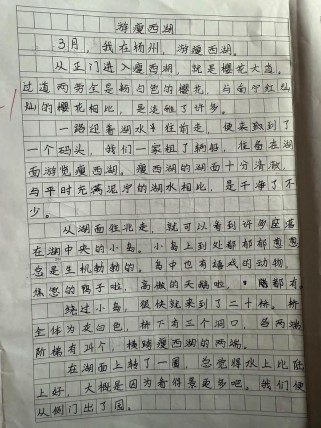 游瘦西湖
3月，我在杨州，游瘦西湖。
从正门进入瘦西湖，就是樱花大道。
过道两旁全是粉匀色的樱花，与南宁红灿
灿的樱花相比，是淡雅了许多。
一路迎着湖水往前走，便来致到了
一个码头，我们一家租了辆船，任易在湖
面游览瘦西湖。瘦西湖的湖面十分清澈，
与平时充满泥泞的湖水相比，是干净了不
少。
从湖面往北走，就可以看到许多座落
在湖中央的小岛。小岛上到处都郁郁葱葱
总是生机勃勃的。岛中也有嬉戏的动物。
焦急的鸭子啦，高傲的天鹅啦，都有。
绕过小岛，很快就来到了二十桥。桥
全体为灰白色，桥下有三个洞口，各两端
阶梯有24个，横跨瘦西湖的两端。
在湖面上转了一圈，总觉得水上比陆
上好，大概是因为看得景更多吧。我们便
从侧门出了园。